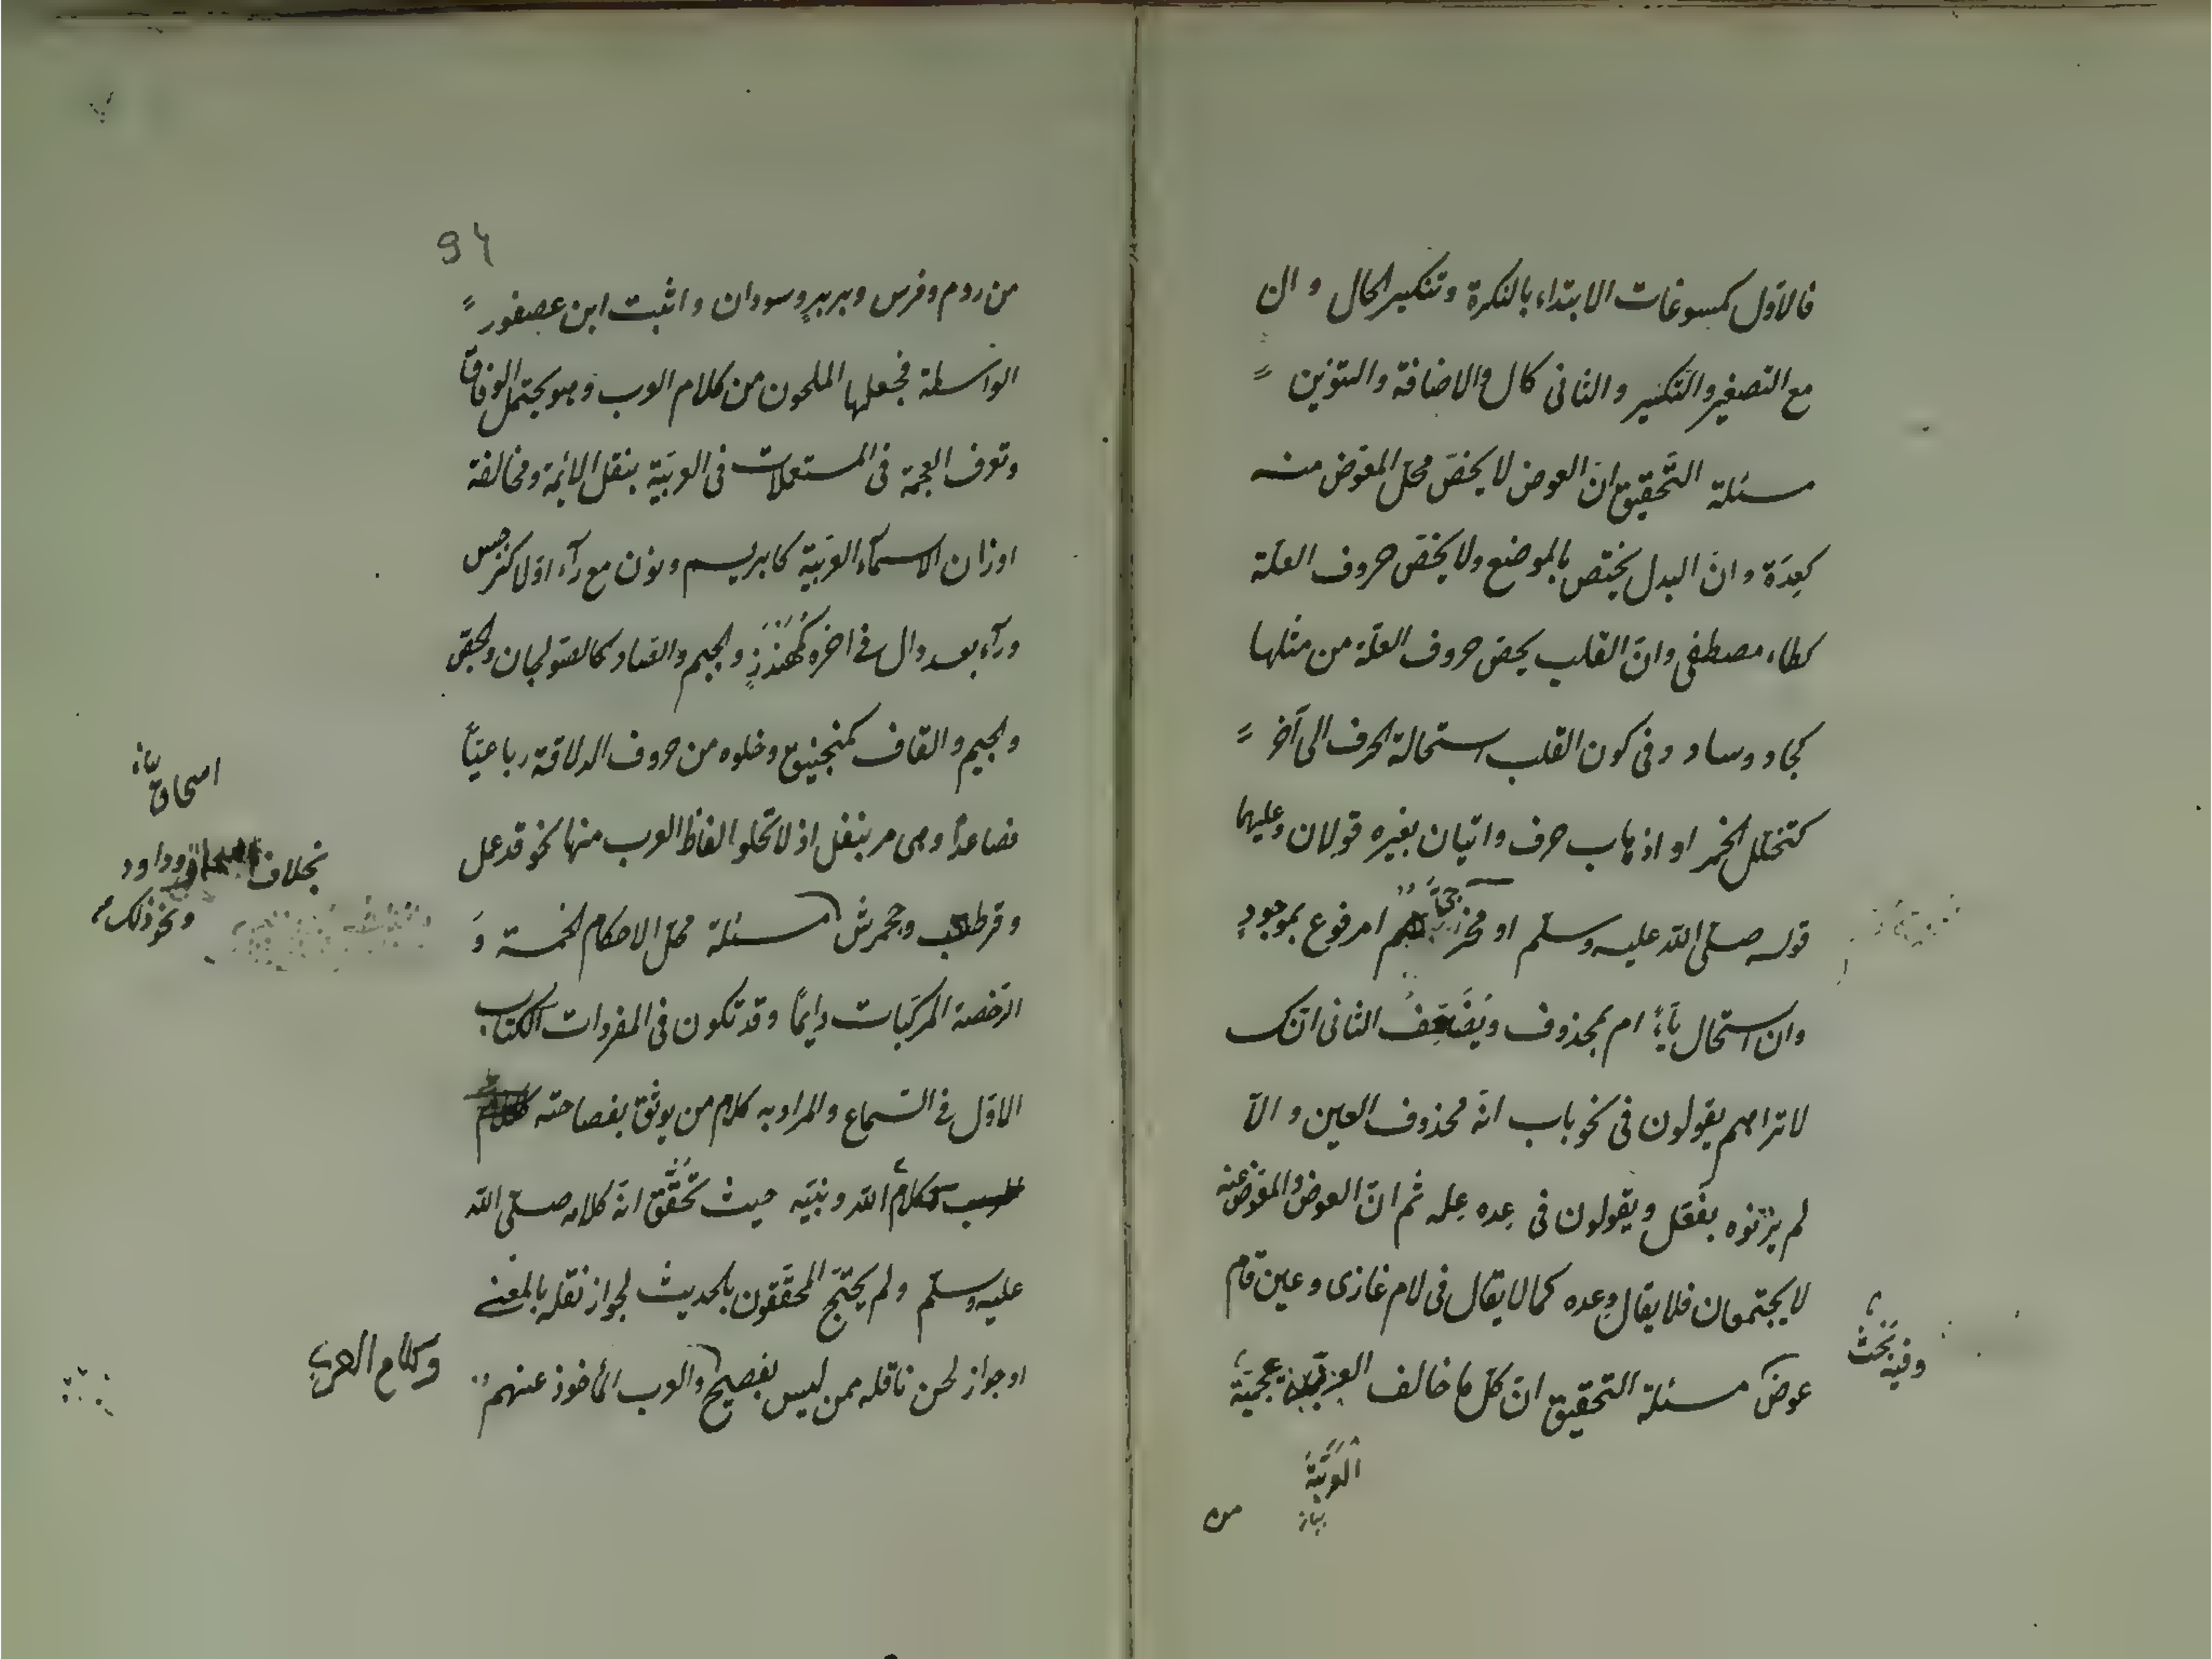 فالاوّل كمسوغات الابتداء بالنكرة وتنكير الحال و ال
مع التصغير والتكسير والثانى كال والاضافة والتنوين
مسئلة التّحقيق انّ العوض لا يخصّ محلّ المعوّض منه
كعِدَة وانّ البدل يختص بالموضع ولا يخصّ حروف العلّة
كطاء مصطفى وانّ القلب يخصّ حروف العلّة من مثلها
كجاد وساد وفى كون القلب استحالة الحرف الى آخر
كتخلّل الخمر او اذهاب حرف واتيان بغيره قولان وعليهما
قوله صلّى الله عليه وسلّم او مخرجىّ هم امرفوع بموجودٍ
وان استحال ياءً ام بمحذوف ويُضَعِّفُ الثانى انّك
لا تراهم يقولون فى نحو باب انّه محذوف العين والّا
لم يزنوه بفَعَل ويقولون فى عِده عِله ثم انّ العوض والمعوّض عنه
لا يجتمعان فلا يقال وِعده كما لا يقال فى لام غازى وعين قام
وفيه بحث
عوض مسئلة التحقيق انّ كلّ ما خالف العربيّة عجميّة
العربيّة
بيان
من
94
من روم وفرس وبربر وسودان واثبت ابن عصفور
الواسطة فجعلها الملحون من كلام العرب وهو يحتمل الوفاق
وتعرف العجمة فى المستعملات فى العربيّة بنقل الائمة ومخالفة
اوزان الاسمآء العربيّة كابريسم ونون مع رآء اوّلا كنرجس
ورآء بعد دال فى اخره كمُهَنْدِز والجيم والصاد كالصّولجان والجصّ
والجيم والقاف كمنجنيق وخلوه من حروف الدلاقة رباعيّاً
اسحاق
بيان
فصاعداً وهى مر بنفل اذ لا تخلو الفاظ العرب منها نحو قدعمل
بخلاف وداود
ونحو ذلك
وقرطعب وجحمرش مسئلة محلّ الاحكام الخمسة وَ
الرّخصة المركّبات دايماً وقد تكون فى المفردات الكتاب
الاوّل فى السّماع والمراد به كلام من يوثق بفصاحته
كلام الله ونبيّه حيث تُحُقِّق انّه كلامه صلّى الله
عليه وسلّم ولم يحتجّ المحقّقون بالحديث لجواز نقله بالمعنى
وكلام العرب
او جواز لحن ناقله ممن ليس بفصيح والعرب المأخوذ عنهم